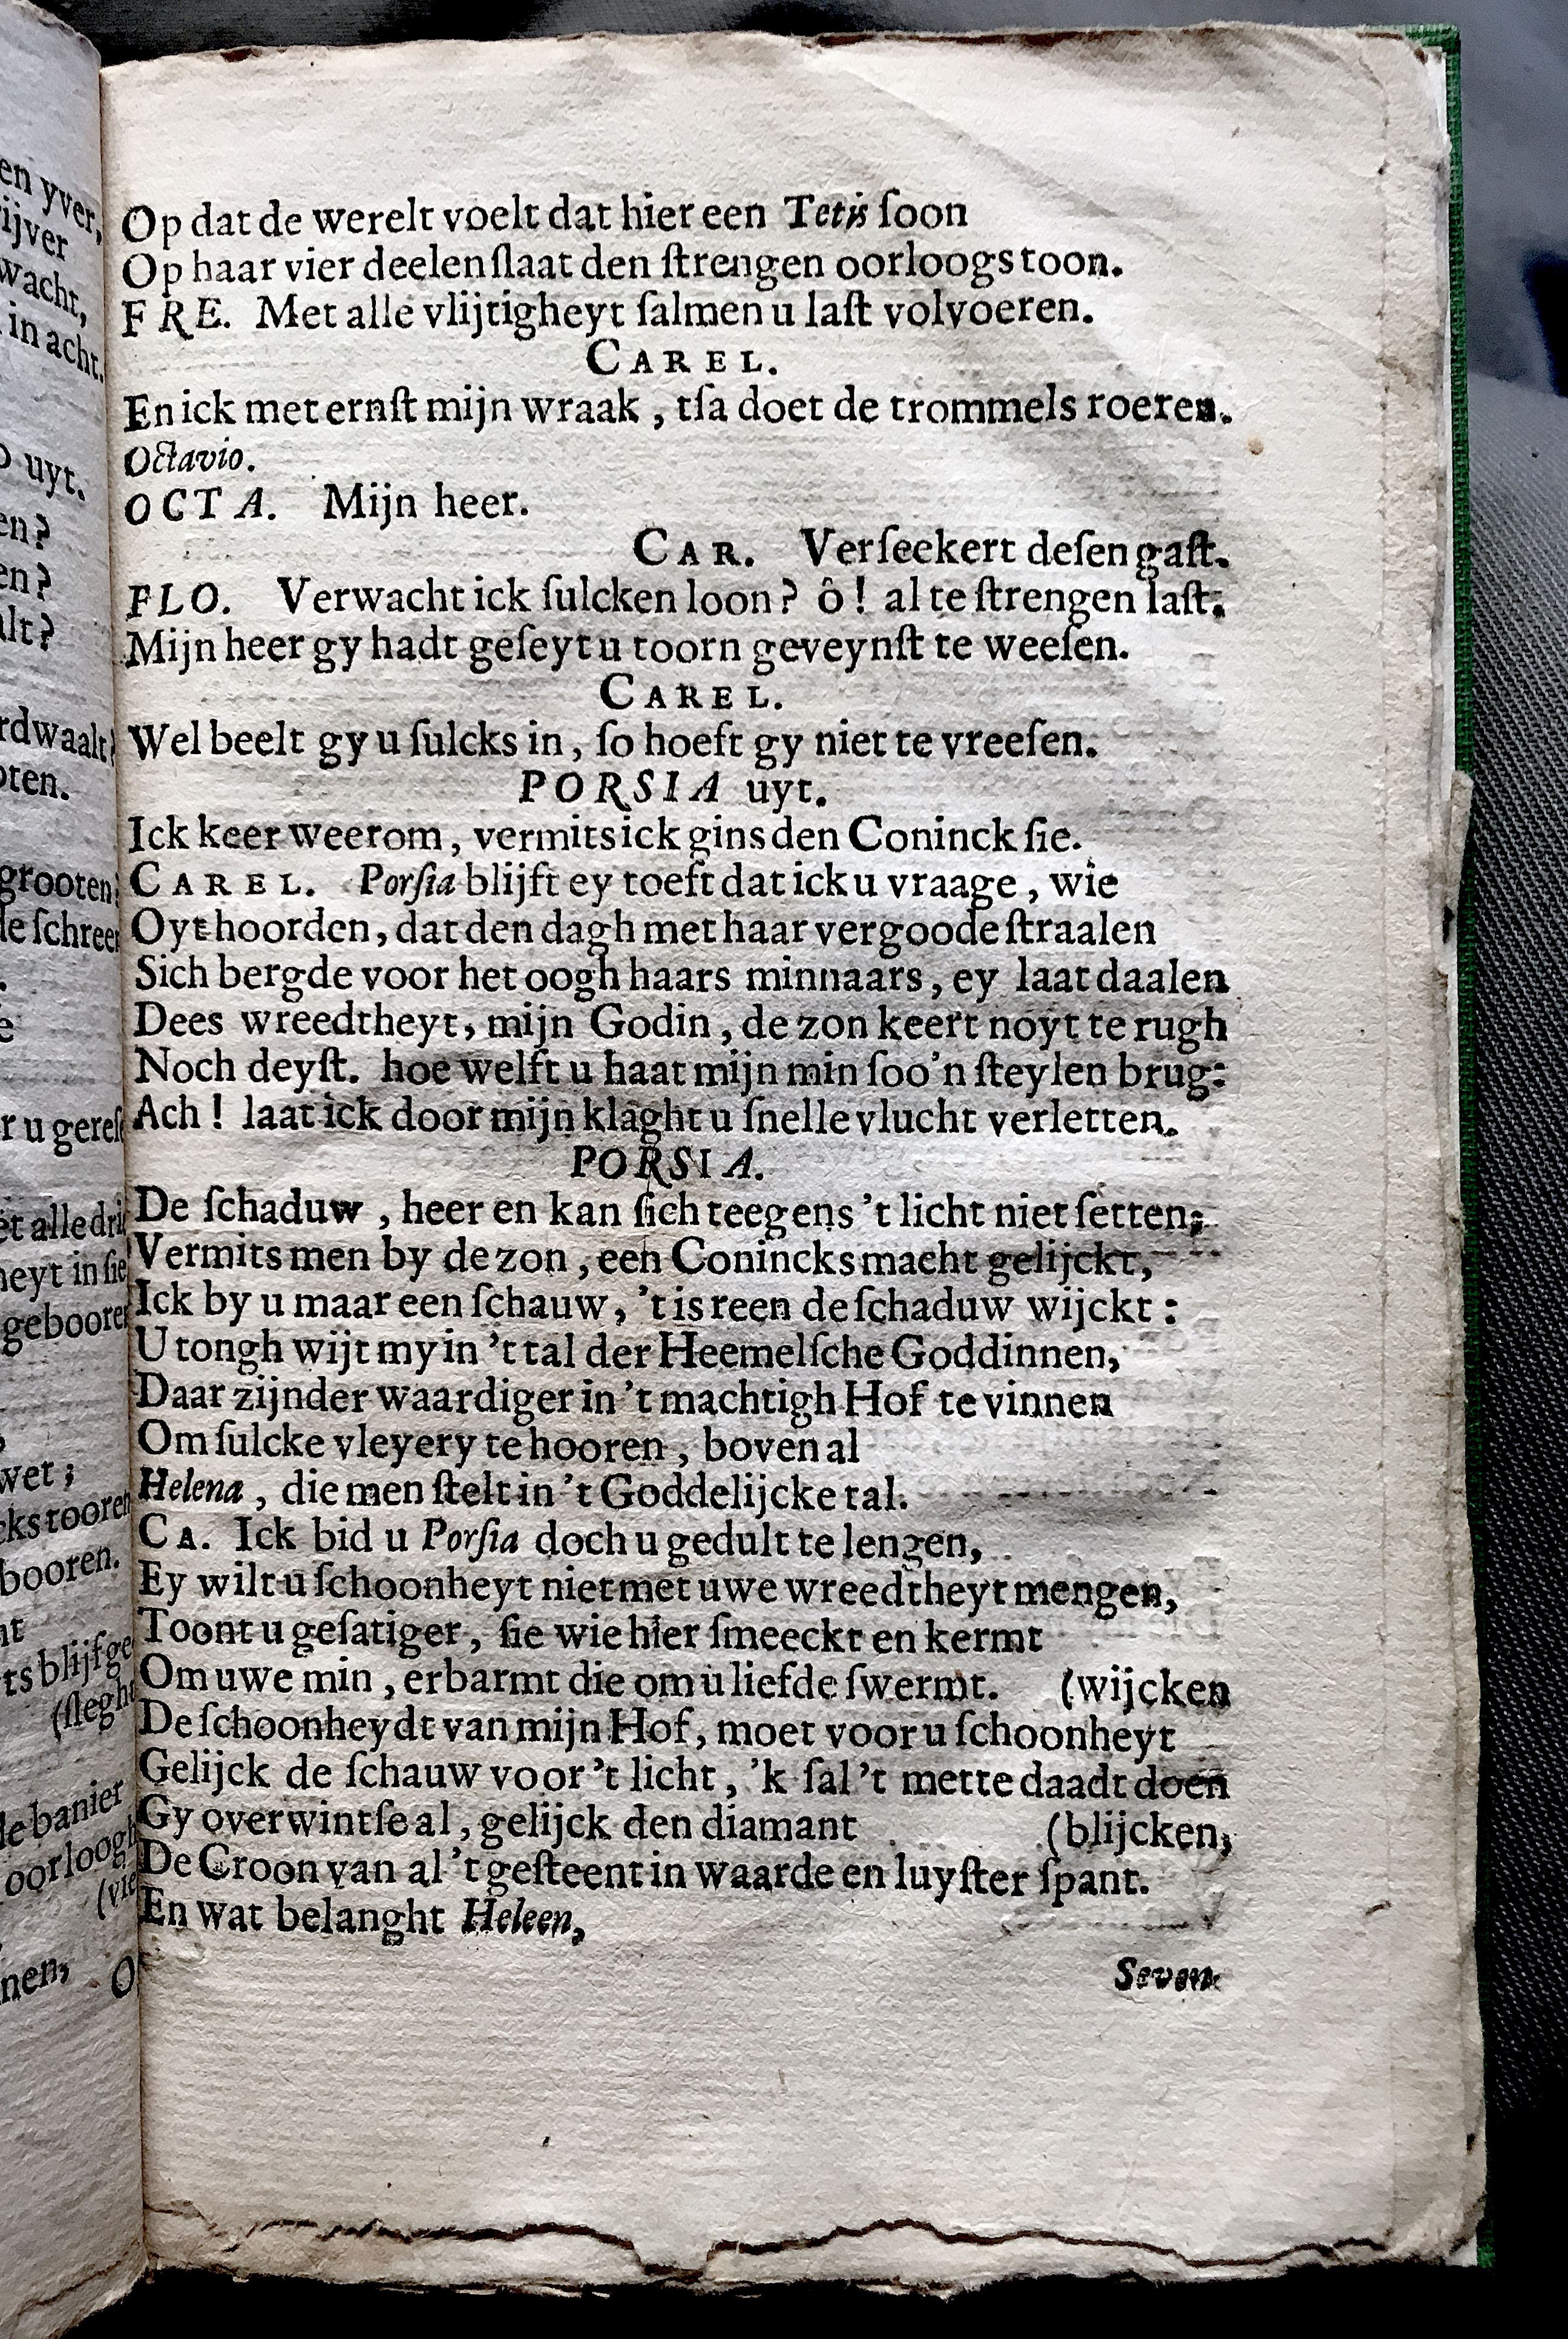 Op dat de werelt voelt dat hier een Tetis ſoon
Op haar vier deelen ſlaat den ſtrengen oorloogs toon.
FRE. Met alle vlijtigheyt ſalmen u laſt volvoeren.
CAREL.
En ick met ernſt mijn wraak, tſa doet de trommels roeren.
Octavio.
OCTA. Mijn heer.
CAR. Verſeekert deſen gaſt.
FLO. Verwacht ick ſulcken loon? ô! al te ſtrengen laſt,
Mijn heer gy hadt geſeyt u toorn geveynſt te weeſen.
CAREL.
Wel beelt gy u ſulcks in, ſo hoeft gy niet te vreeſen.
PORSIA uyt.
Ick keer weerom, vermits ick gins den Coninck ſie.
CAREL. Porſia blijft ey toeft dat ick u vraage, wie
Oyt hoorden, dat den dagh met haar vergoode ſtraalen
Sich bergde voor het oogh haars minnaars, ey laat daalen
Dees wreedtheyt, mijn Godin, de zon keert noyt te rugh
Noch deyſt. hoe welft u haat mijn min ſoo'n ſteylen brug:
Ach! laat ick door mijn klaght u ſnelle vlucht verletten.
PORSIA.
De ſchaduw, heer en kan ſich teegens 't licht niet ſetten;
Vermits men by de zon, een Conincks macht gelijckt,
Ick by u maar een ſchauw, 't is reen de ſchaduw wijckt:
U tongh wijt my in 't tal der Heemelſche Goddinnen,
Daar zijnder waardiger in 't machtigh Hof te vinnen
Om ſulcke vleyery te hooren, boven al
Helena, die men ſtelt in 't Goddelijcke tal.
CA. Ick bid u Porſia doch u gedult te lengen,
Ey wilt u ſchoonheyt niet met uwe wreedtheyt mengen,
Toont u geſatiger, ſie wie hier ſmeeckt en kermt
Om uwe min, erbarmt die om u liefde ſwermt. (wijcken
De ſchoonheydt van mijn Hof, moet voor u ſchoonheyt
Gelijck de ſchauw voor 't licht, 'k ſal 't mette daadt doen
Gy overwintſe al, gelijck den diamant (blijcken,
De Croon van al 't geſteent in waarde en luyſter ſpant.
En wat belanght Heleen,
Seven